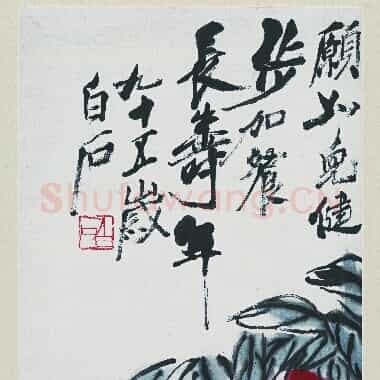 願如兔健
步加餐
長壽年
九十五歲
白石
Shufawang.Cn